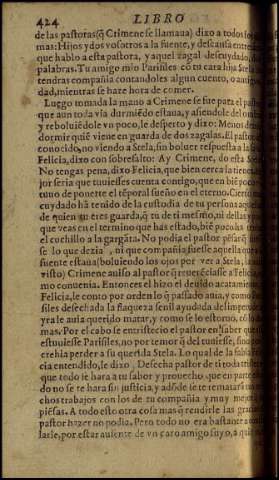 424 LIBRO
de las pastoras (q̃ Crimene se llamaua) dixo a todos los de
mas: Hijos y dos vosotros a la fuente, y descansa
que hablo a esta pastora, y aquel zagal descuydado, dos
palabras. Tu amigo mio Parisiles cõ tu cara hija Stela
tendras compañia contandoles algun cuento, o antigue
dad, mientras se haze hora de comer.
Luego tomada la mano a Crimene se fue para el pastor
que aun toda via durmiẽdo estaua, y asiendole del ombro
y reboluiẽdole vn poco, le desperto y dixo: Menos ha de
dormir quiẽ viene en guarda de dos zagalas. El pastor
conocido, no viendo a Stela, sin boluer respuesta a la
Felicia, dixo con sobresalto: Ay Crimene, do esta Stela
No tengas pena, dixo Felicia, que bien cerca la tienes,
jor seria que tuuiesses cuenta comigo, que en biẽ poco
tuuo de ponerte el tẽporal sueño en el eterno. Cierto
cuydado hã tenido de la custodia de tu persona
de quien su eres guarda, q̃ tu de ti mesmo, ni dellas
que veas en el termino que has estado, biẽ podias
el cuchillo a la gargãta. No podia el pastor pẽsar
se lo que dezia, ni que compañia fuesse aquella
la fuente estaua (boluiendo los ojos por ver a Stela,
visto) Crimene auiso al pastor q̃ reuerẽciasse a Felicia,
mo conuenia. Entonces el hizo el deuido acatamiento
Felicia, le conto por orden lo q̃ passado auia, y como
siles desechada la flaqueza senil ayudada del
yra le auia querido matar, y como se lo estorno, cõ lo
mas. Por el cabo se entristecio el pastor en saber que
estuuiesse Parisiles, no por temor q̃ del tuuiesse, sino
trehia perder a su querida Stela. Lo qual de la sabia Feli
cia entendido, le dixo, Desecha pastor de ti toda
que todo se hara a tu sabor y prouecho que en parte
do no se te hara sin justicia, y adõde se te remataràn
chos trabajos con los de tu compañia y muy mejor
piẽsas. A todo esto otra cosa mas q̃ rendirle las gracias
pastor hazer no podia. Pero todo no era bastante a
larle, por estar ausente de vn caro amigo suyo, a quie